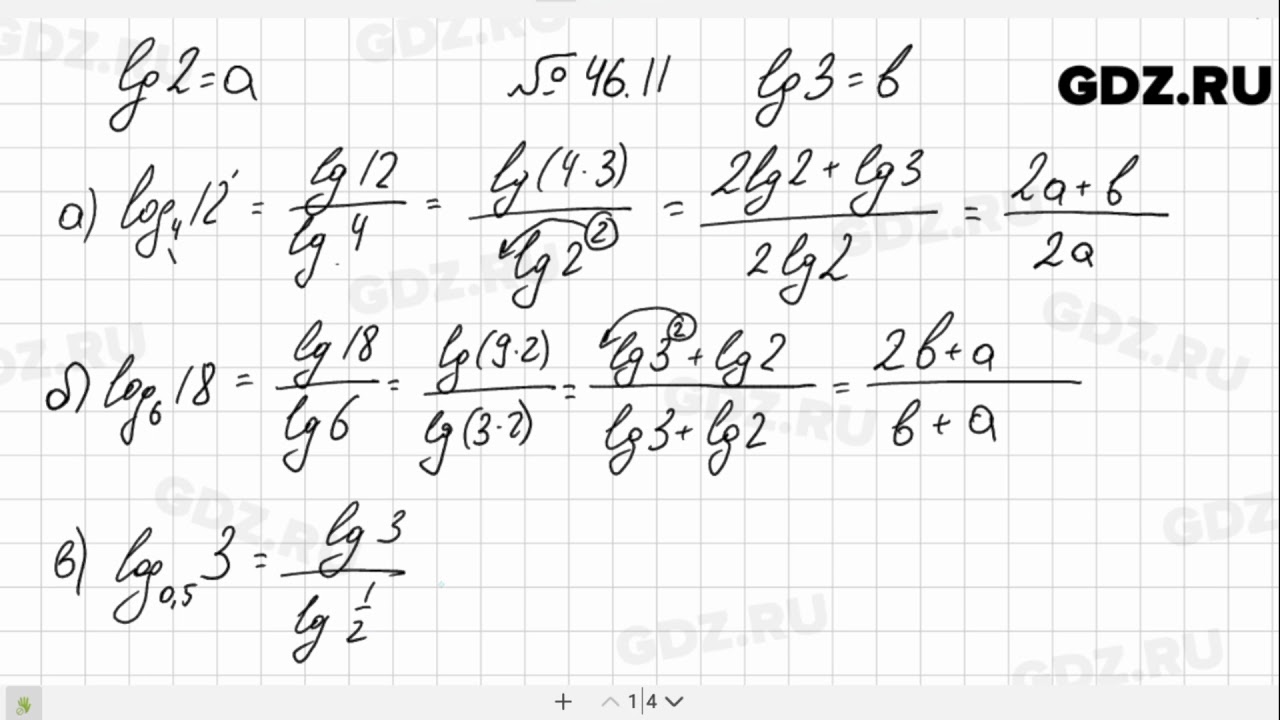 lg 2 = a № 46.11 lg 3 = b GDZ.RU
а) log₄ 12 = lg 12 / lg 4 = lg (4 · 3) / lg 2² = (2 lg 2 + lg 3) / (2 lg 2) = (2a + b) / 2a
б) log₆ 18 = lg 18 / lg 6 = lg (9 · 2) / lg (3 · 2) = (lg 3² + lg 2) / (lg 3 + lg 2) = (2b + a) / (b + a)
в) log₀,₅ 3 = lg 3 / lg 1/2
1 4